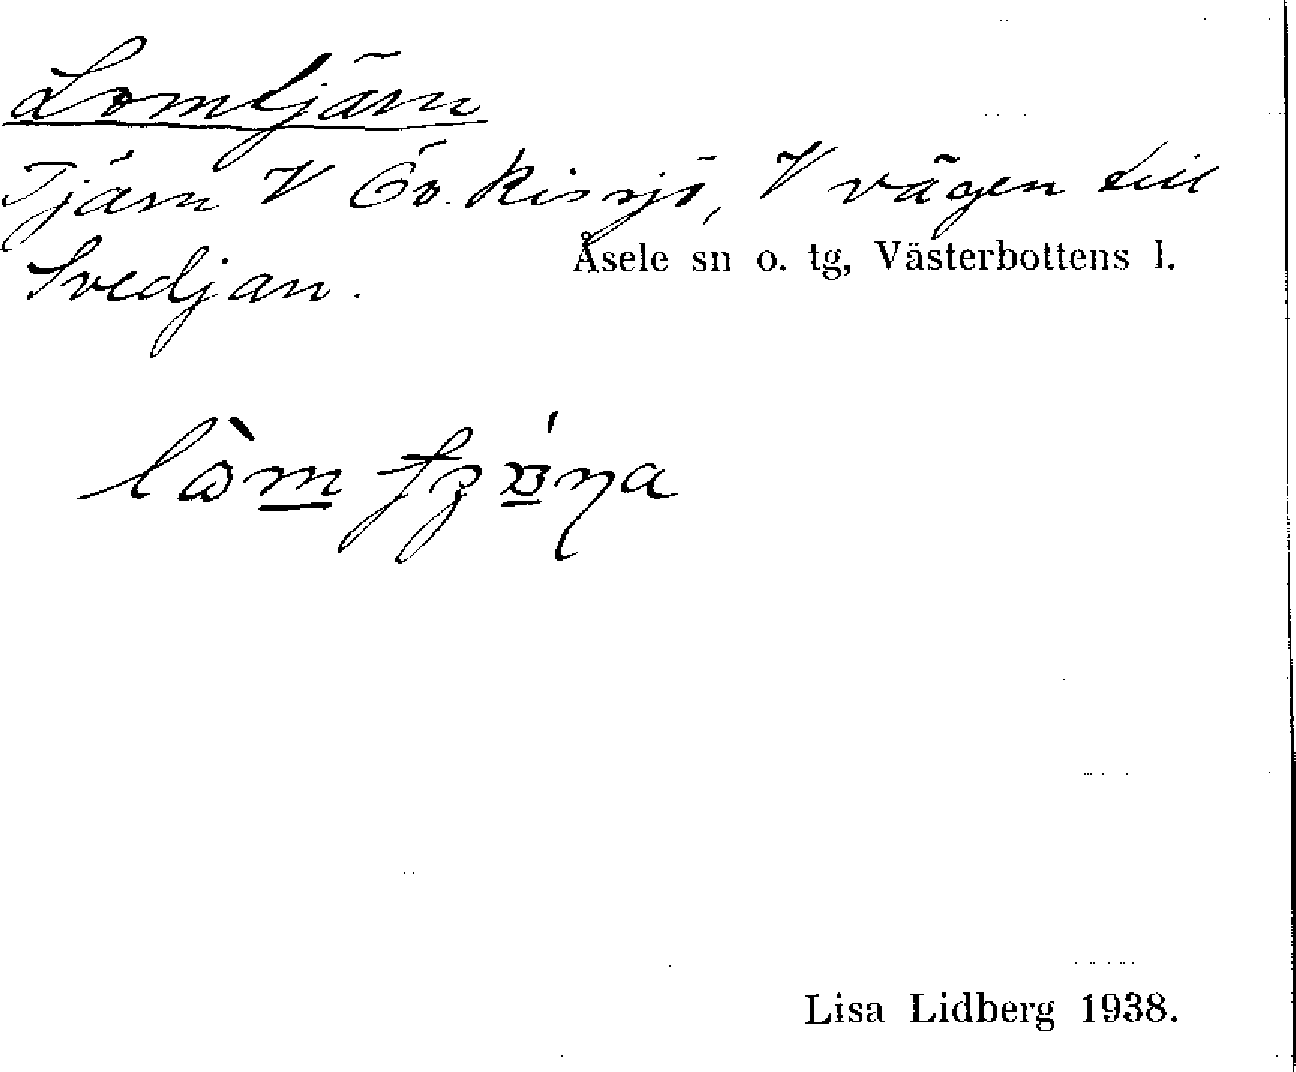 Lomtjärn
Tjärn V Öv. Rissjö, V vägen till
Svedjan.
Åsele sn o. tg, Västerbottens l.
Lisa Lidberg 1938.